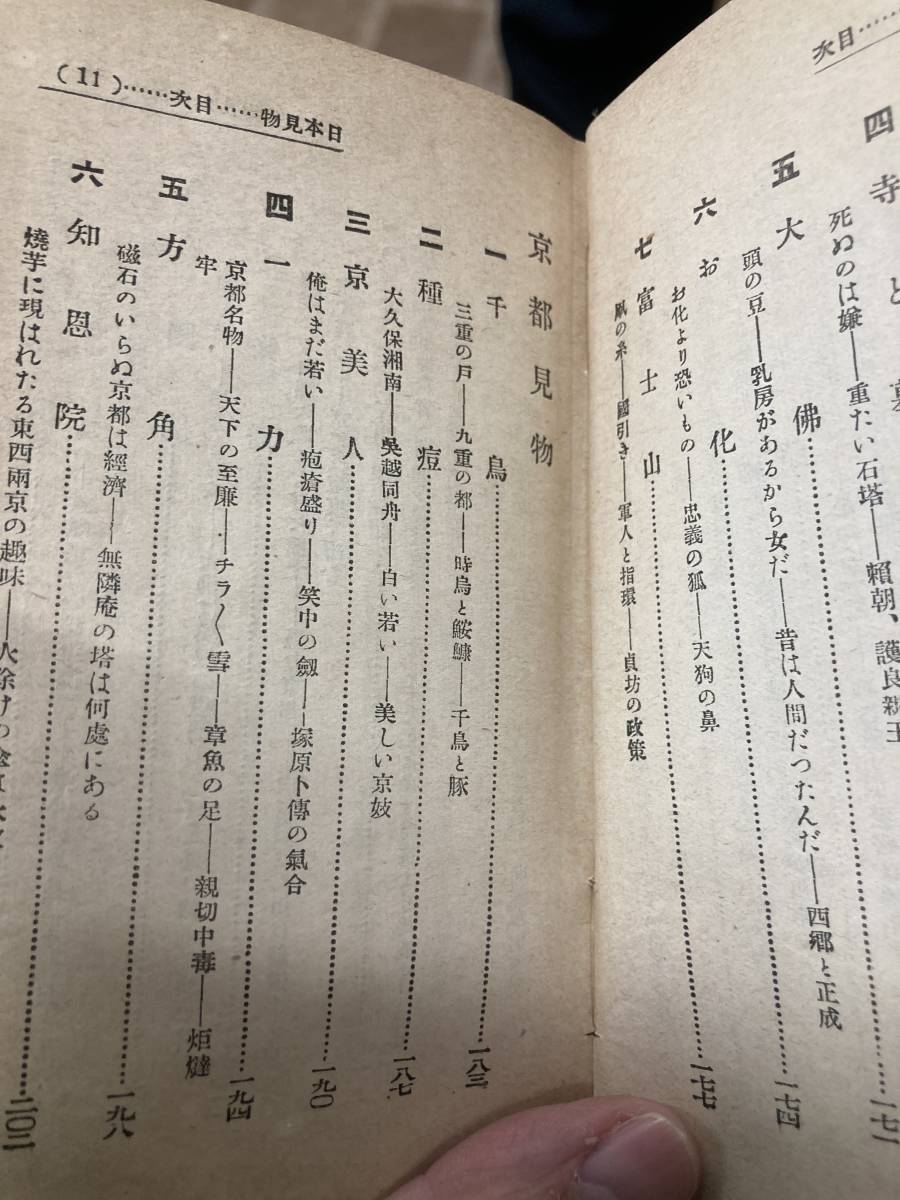 目次……
四 寺と墓
死ぬのは嫌――重たい石塔――賴朝、護良親王
一七一
五 大佛……一七四
頭の豆――乳房があるから女だ――昔は人間だつたんだ――西鄕と正成
六 お化……一七七
お化より恐いもの――忠義の狐――天狗の鼻
七 富士山……
凧の糸――國引き――軍人と指環――貞坊の政策
日本見物……目次……(11)
京都見物
一 千鳥……一八三
三重の戸――九重の都――時鳥と鮟鱇――千鳥と豚
二 種痘……一八七
大久保湘南――吳越同舟――白い若い――美しい京妓
三 京美人……一九〇
俺はまだ若い――疱瘡盛り――笑中の劔――塚原卜傳の氣合
四 一力……一九四
京都名物――天下の至廉――チラ〱雪――章魚の足――親切中毒――炬燵
牢
五 方角……一九八
磁石のいらぬ京都は經濟――無隣庵の塔は何處にある
六 知恩院……二〇二
燒芋に現はれたる東西兩京の趣味――火除けの傘